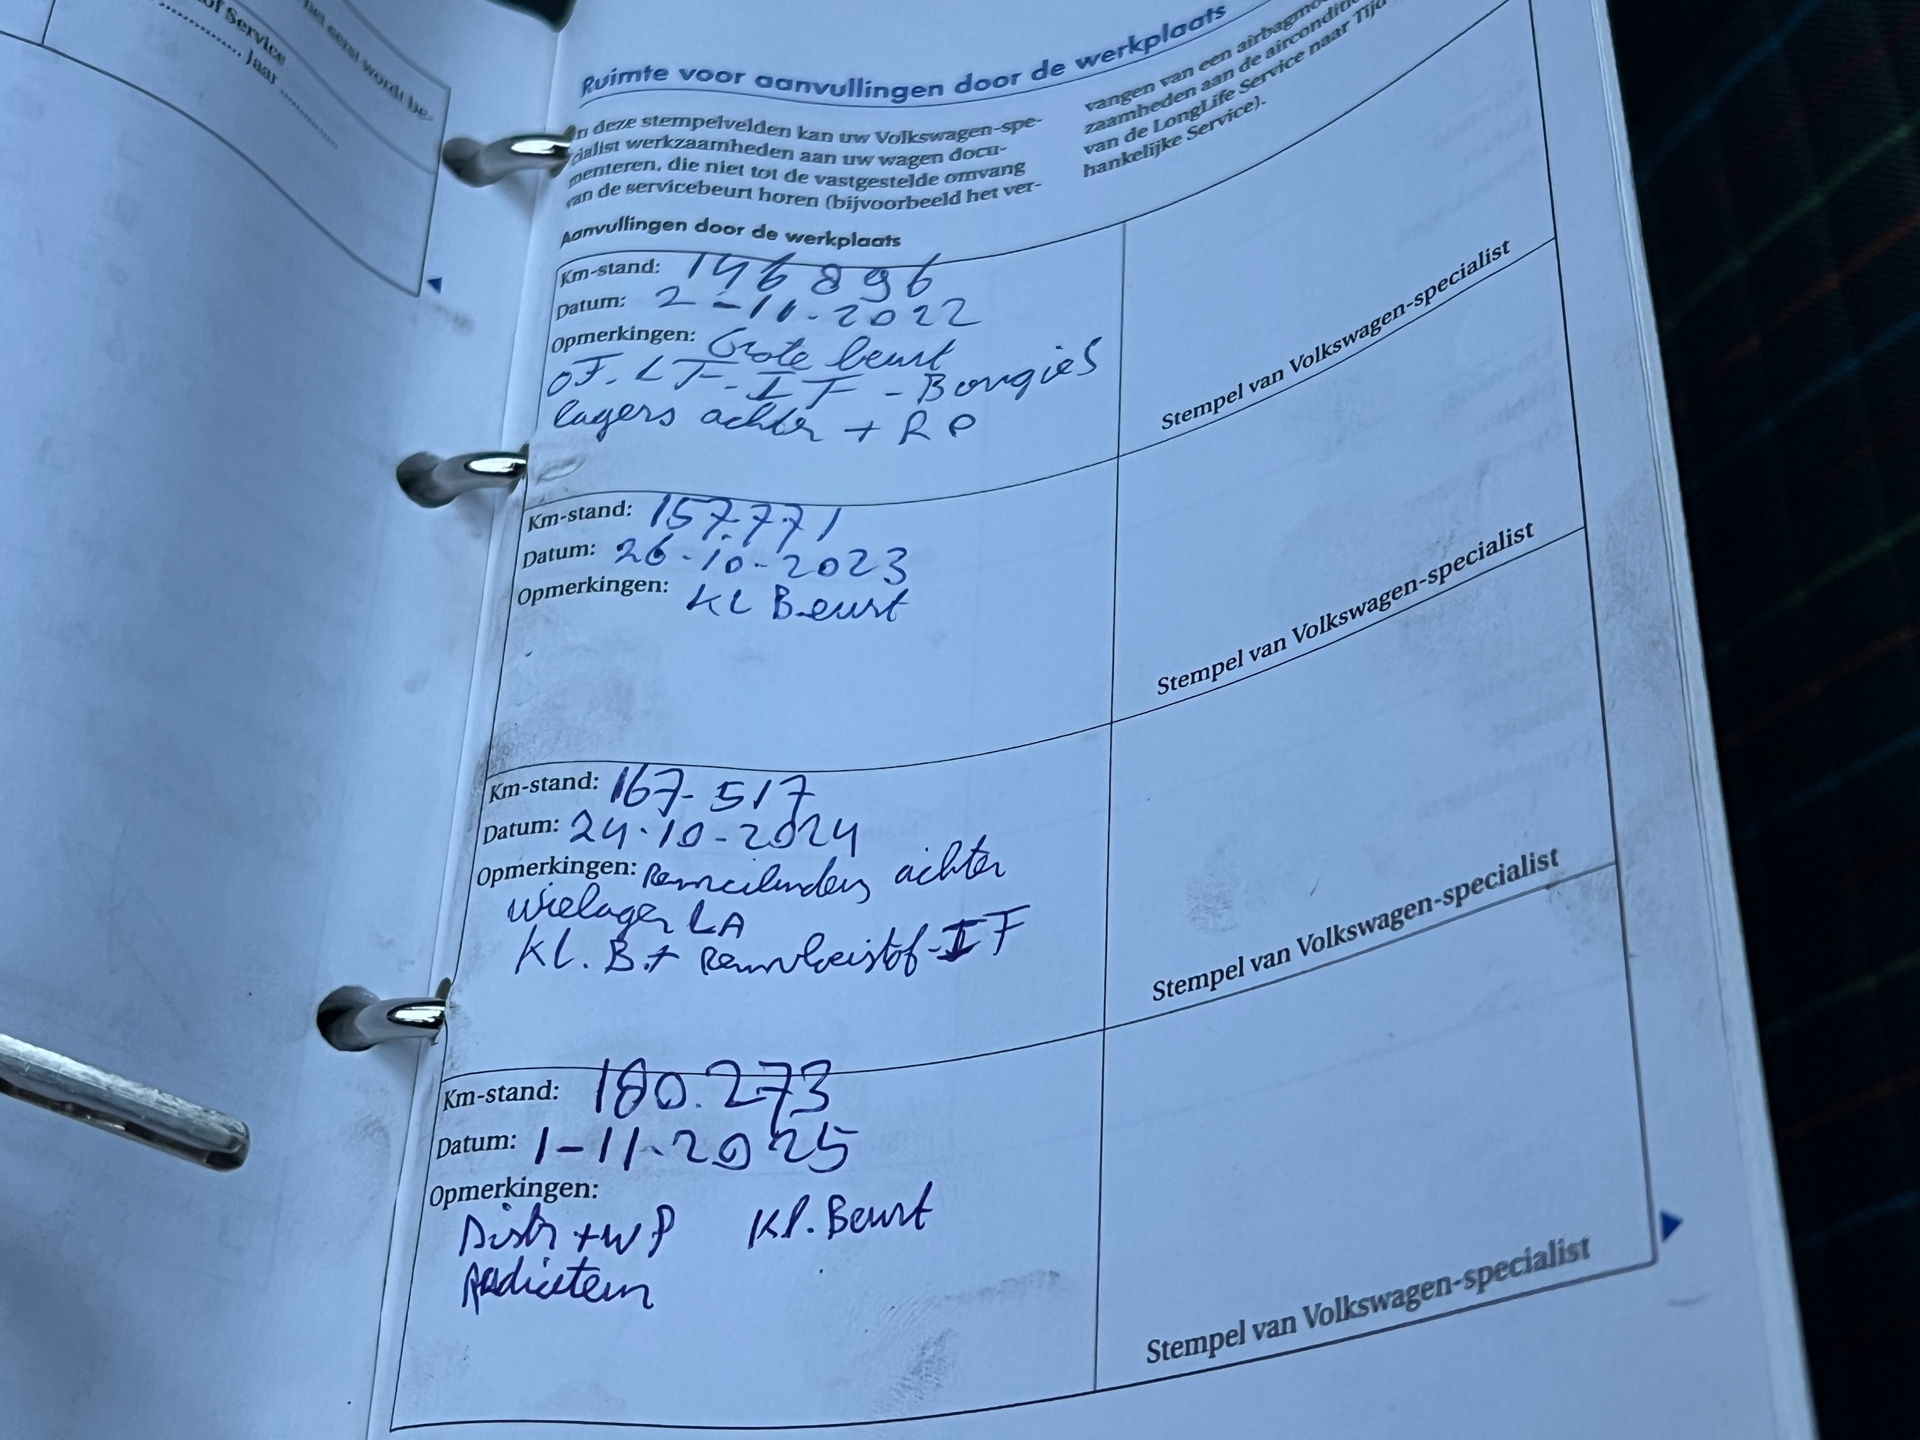 het eerst wordt be-
of Service
Jaar
Ruimte voor aanvullingen door de werkplaats
n deze stempelvelden kan uw Volkswagen-spe-
cialist werkzaamheden aan uw wagen docu-
menteren, die niet tot de vastgestelde omvang
van de servicebeurt horen (bijvoorbeeld het ver-
vangen van een airbagmo
zaamheden aan de airconditi
van de LongLife Service naar Tijd
hankelijke Service).
Aanvullingen door de werkplaats
Km-stand: 146896
Datum: 2-11-2022
Opmerkingen: Grote beurt
OF. LF-IF - Bougies
lagers achter + RP
Stempel van Volkswagen-specialist
Km-stand: 157.771
Datum: 26-10-2023
Opmerkingen: KL Beurt
Stempel van Volkswagen-specialist
Km-stand: 167-517
Datum: 24-10-2024
Opmerkingen: Remcilinders achter
wielager LA
KL. B.+ Remvloeistof-IF
Stempel van Volkswagen-specialist
Km-stand: 180.273
Datum: 1-11-2025
Opmerkingen:
Distr + WP Kl. Beurt
Radiateur
Stempel van Volkswagen-specialist